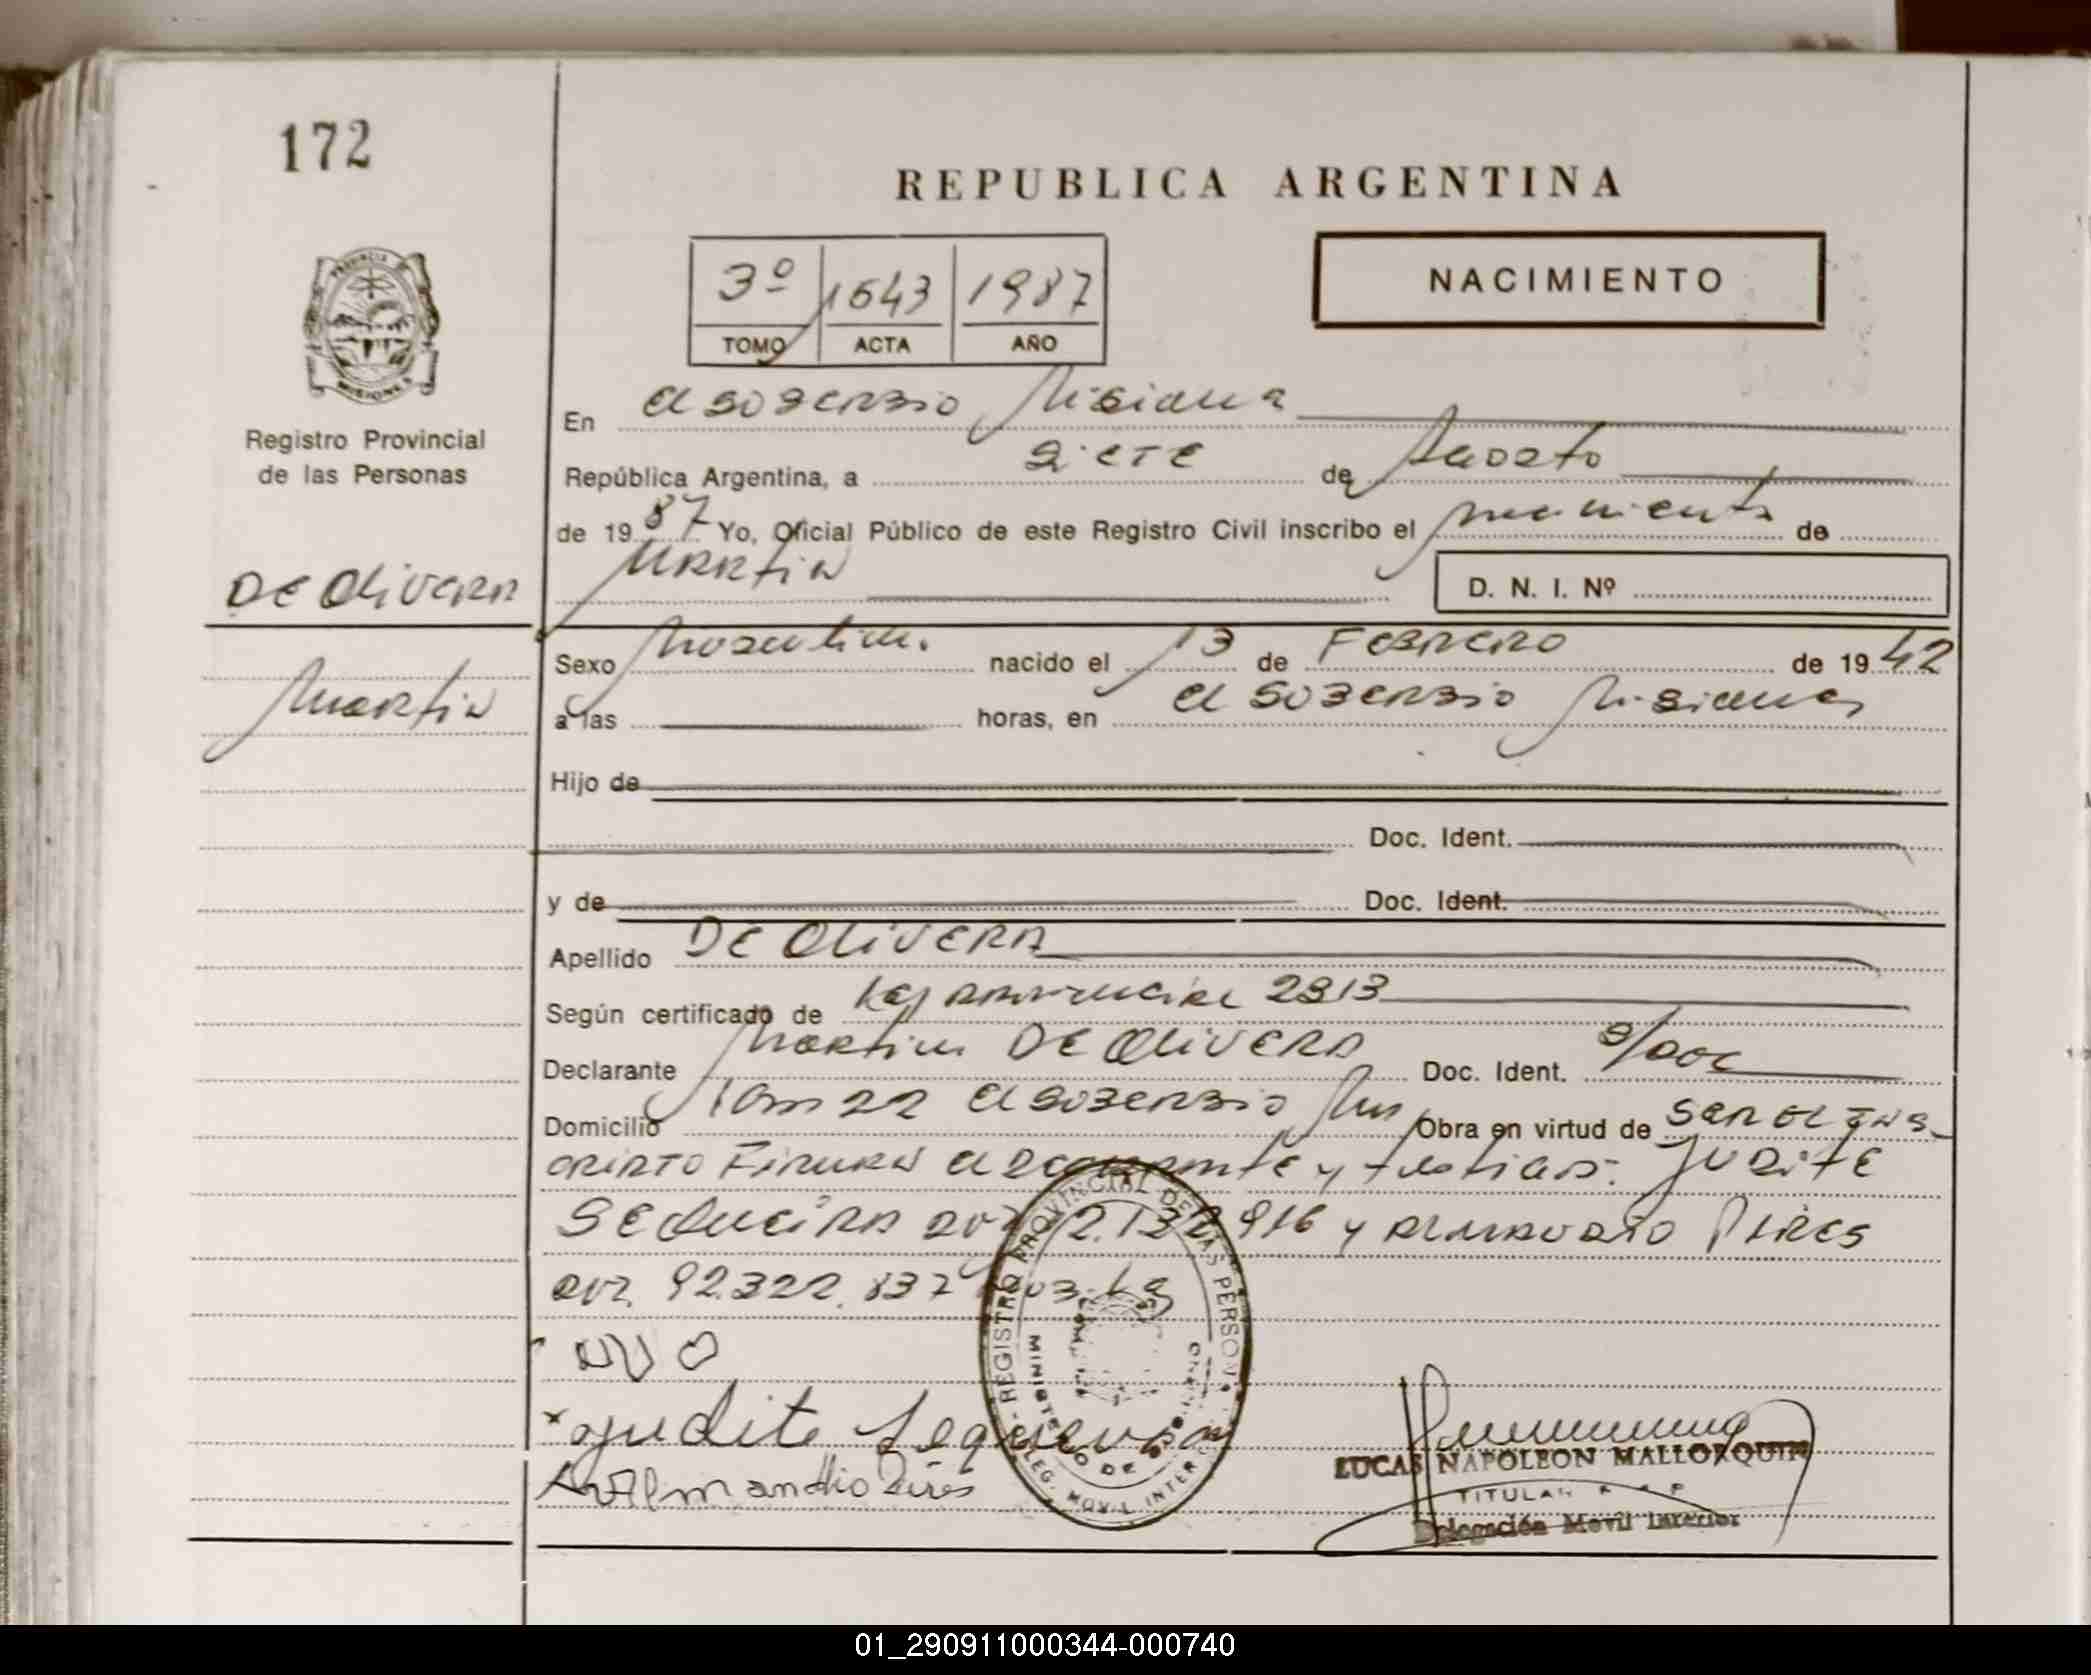 172
REPUBLICA ARGENTINA
NACIMIENTO
3º 1643 1987
TOMO ACTA AÑO
PROVINCIA DE
MISIONES
Registro Provincial
de las Personas
En El Soberbio Misiones
República Argentina, a siete de Agosto
de 1987 Yo, Oficial Público de este Registro Civil inscribo el nacimiento de
Martin
D. N. I. Nº
DE OLIVERA
Martin
Sexo Masculino nacido el 13 de FEBRERO de 1942
a las horas, en El Soberbio Misiones
Hijo de
Doc. Ident.
y de Doc. Ident.
Apellido DE OLIVERA
Según certificado de Ley provincial 2313
Declarante Martin DE OLIVERA Doc. Ident. S/Doc
Domicilio El Soberbio Mnes Obra en virtud de SER EL INS-
CRIPTO Firman el declarante y testigos: JUDITE
SEQUEIRA DNI y ALMANDIO PIRES
DNI. 92.322.837
x Judite Sequeira
Almandio Pires
REGISTRO PROVINCIAL DE LAS PERSONAS
MINISTERIO DE GOBIERNO
DELEG. MOVIL INTERIOR
LUCAS NAPOLEON MALLORQUIN
TITULAR R P P
Delegación Movil Interior
01_290911000344-000740